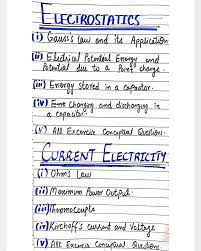 ELECTROSTATICS
(i) Gauss's law and its Application
(ii) Electrical Potential Energy and
Potential due to a Point charge.
(iii) Energy Stored in a capacitor.
(iv) charging and discharging in
a capacitor.
(v) All Excercise Conceptual Questions.
CURRENT ELECTRICTIY
(i) Ohms Law
(ii) Maximum Power Output
(iii) Thermocouple
(iv) Kirchoff's current and Voltage
(v) All Excercis Conceptual Questions.